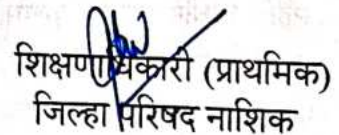 शिक्षणाधिकारी (प्राथमिक)
जिल्हा परिषद नाशिक